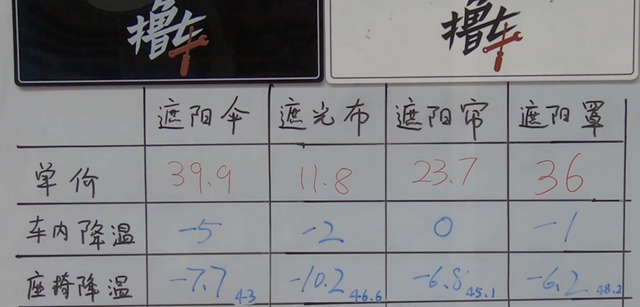 撸车 撸车
遮阳伞 遮光布 遮阳帘 遮阳罩
单价 39.9 11.8 23.7 36
车内降温 -5 -2 0 -1
座椅降温 -7.7 43 -10.2 46.6 -6.8 45.1 -6.2 48.2